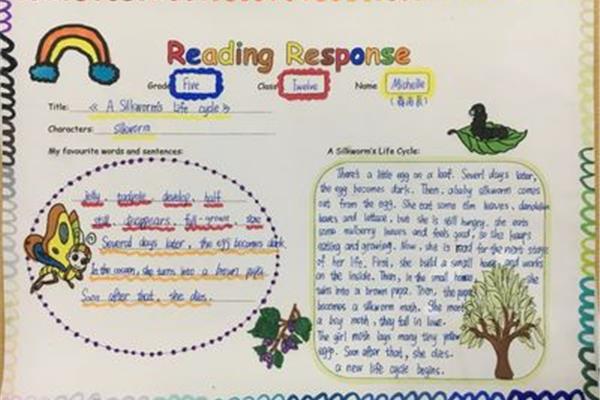 Reading Response
Grade Five Class Twelve Name Michelle
Title: 《A Silkworm's life cycle》
Characters: silkworm
My favourite words and sentences:
A Silkworm's Life Cycle:
tadpole develop half
still disappears full-grown size
Several days later, the egg becomes dark.
In the cocoon, she turns into a brown pupa.
Soon after that, she dies.
There's a little egg on a leaf. Severl days later,
the egg becomes dark. Then, a baby silkworm comes
out from the egg. She eat some elm leaves, dandelion
leaves and lettuce, but she is still hungry. she eats
some mulberry leaves and feels good, so she keeps
eating and growing. Now, she is read for the next stage
of her life. First, she build a small house, and works
on the inside. Then, in the small home she
turns into a brown pupa. Then, the pupa
becomes a silkworm moth. She meets
a boy moth, they fall in love.
The girl moth lays many tiny yellow
eggs. Soon after that, she dies.
a new life cycle begins.